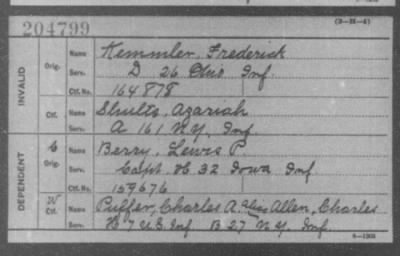 204799
(3-H-4)
INVALID
Orig.
Name Kemmler, Frederick
Serv. D 26 Ohio Inf
Ctf. No. 164878
Ctf.
Name Shults, Azariah
Serv. A 161 N.Y. Inf.
DEPENDENT
C
Orig.
Name Berry, Lewis P.
Serv. Capt. H 32 Iowa Inf
Ctf. No. 159676
W
Ctf.
Name Puffer, Charles A. alias Allen, Charles
H 7 U.S. Inf B 27 N.Y. Inf.